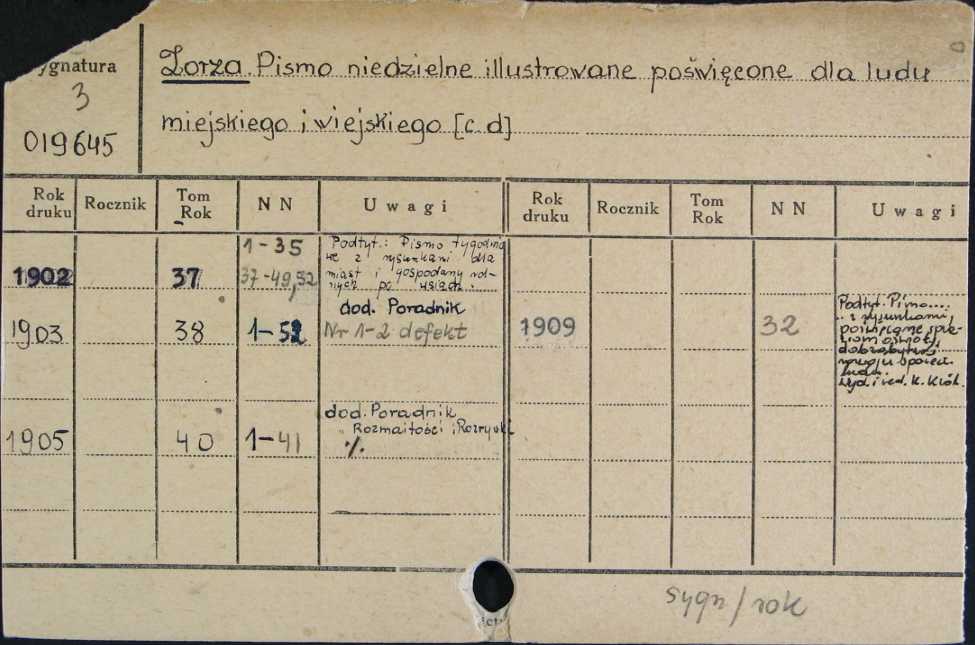 ygnatura
3
019645
Zorza. Pismo niedzielne illustrowane poświęcone dla ludu
miejskiego i wiejskiego [c. d]
Rok druku Rocznik Tom Rok N N Uwagi Rok druku Rocznik Tom Rok N N Uwagi
1902 37 1-35
37-49,52
Podtyt.: Pismo tygodnio
we z rysunkami dla
miast i gospodarzy rol-
nych po wsiach.
1903 38 1-52 dod. Poradnik
Nr 1-2 defekt
1909 32
Podtyt. Pismo....
.. z rysunkami,
poświęcone spra-
wom oświaty,
dobrobytu i
rozwoju społecz.
ludu.
Wyd. i red. K. Król.
1905 40 1-41 dod. Poradnik
" Rozmaitości i Rozrywki
./.
sygn/rok